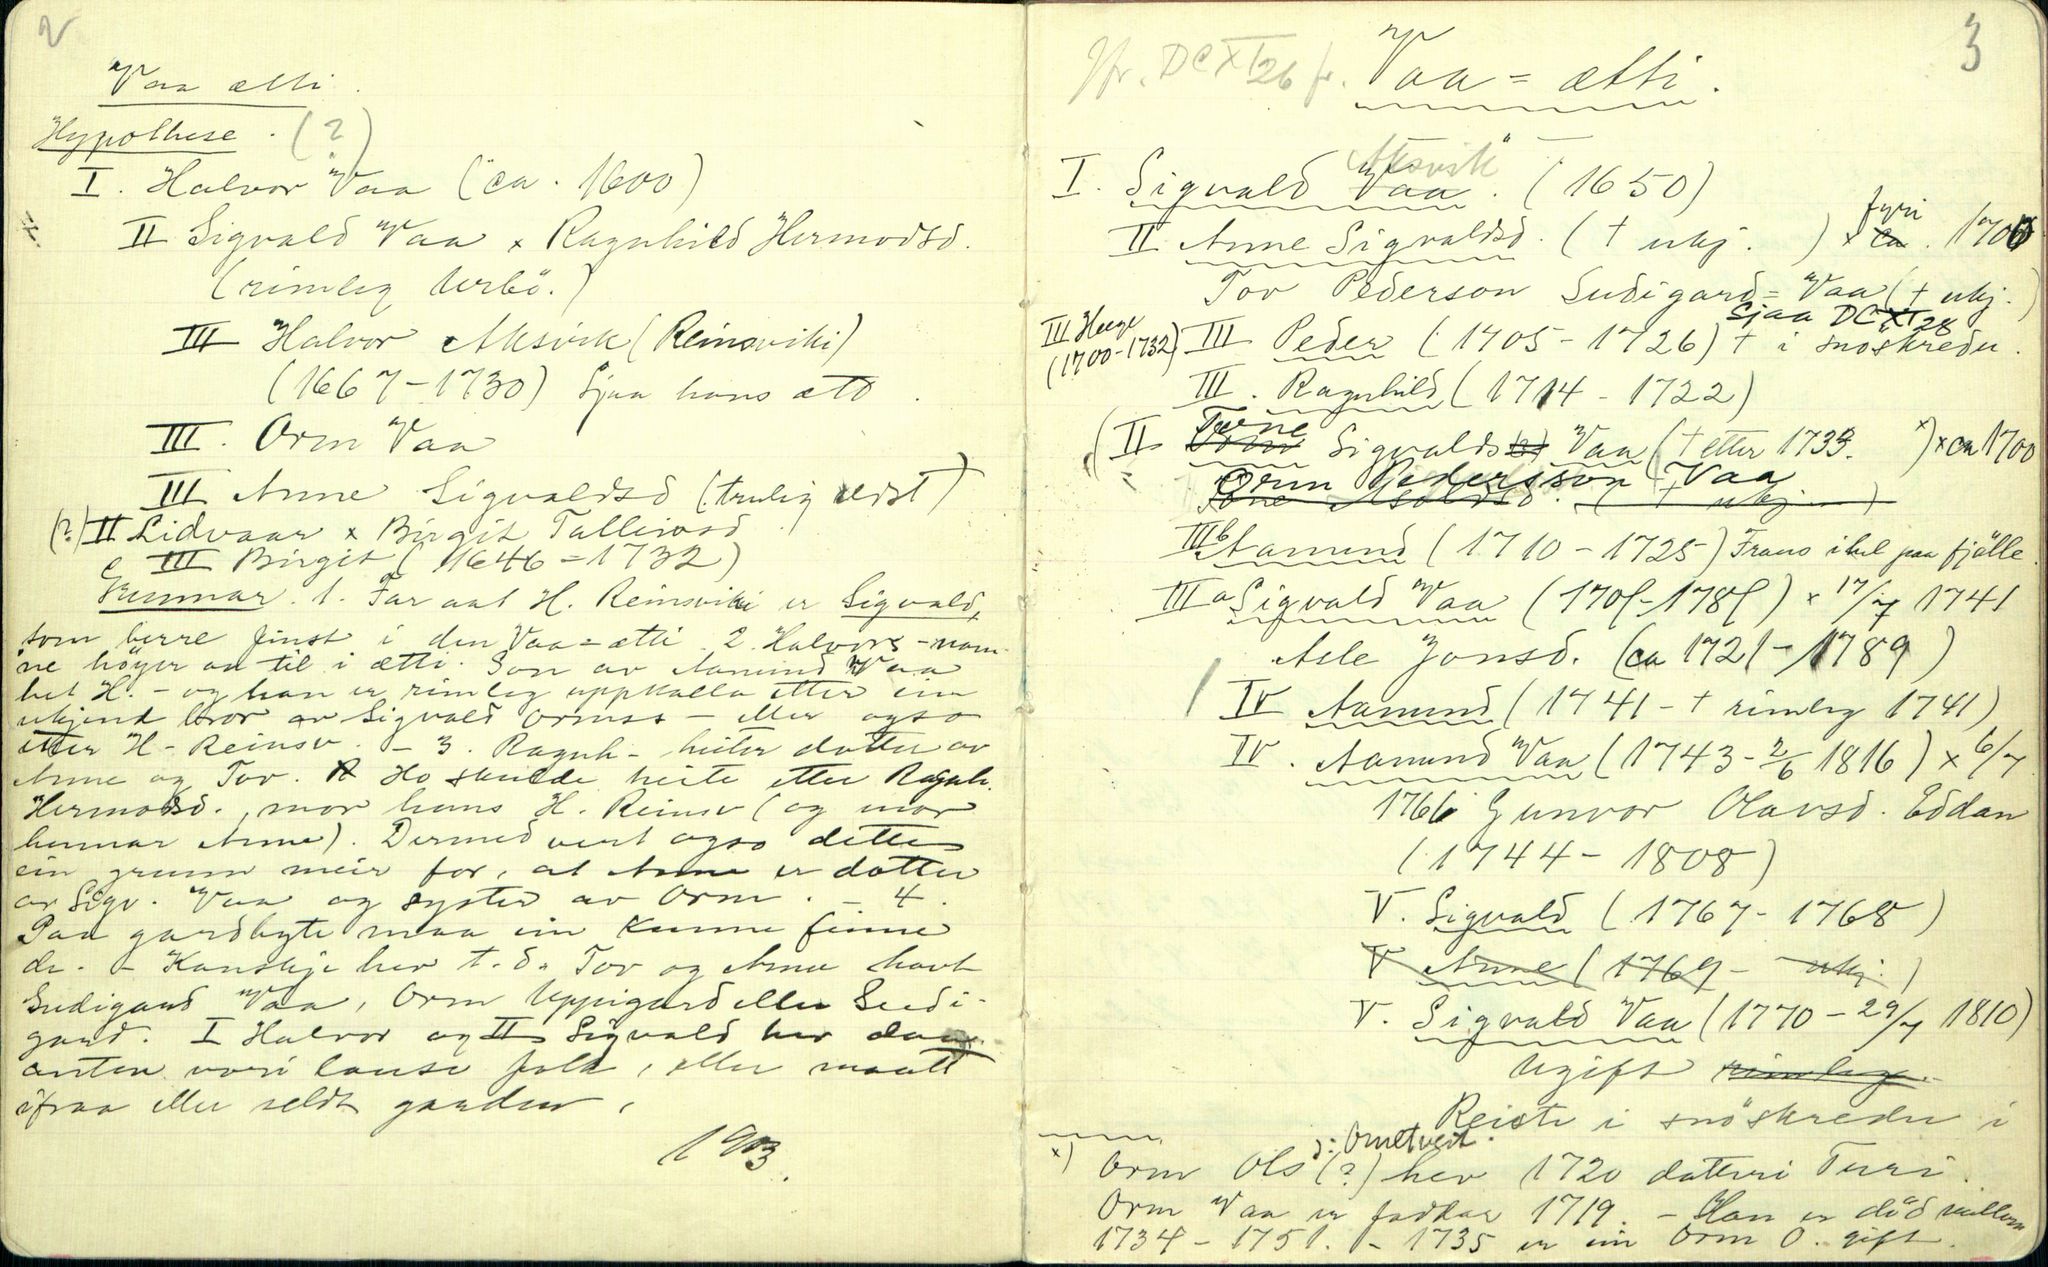 2
Vaa ætti.
Hypothese. (?)
I. Halvor Vaa (ca. 1600)
II Sigvald Vaa x Ragnhild Hermodsd.
(rimleg Urbö.)
III Halvor Aksvik (Reinsviki)
(1667-1730) Sjaa hans ætt.
III. Orm Vaa
III Anne Sigvaldsd (truleg eldst)
(?) II Lidvaar x Birgit Tallivsd
III Birgit (1646-1732)
Grunnar. 1. Far aat H. Reinsviki er Sigvald,
som berre finst i den Vaa=ætti. 2. Halvors-nam-
ne höyrer an til i ætti. Son av Aamund Vaa
het H. - og han er rimleg uppkalla etter ein
ukjend bror av Sigvald Ormss - eller ogso
etter H-Reinsv. - 3. Ragnh- heiter dotter av
Anne og Tov. Ho skulde heite etter Ragnh.
Hermodsd., mor hans H. Reinsv (og mor
hennar Anne). Dermed vert ogso dette
ein grunn meir for, at Anne er dotter
av Sigv. Vaa og syster av Orm. - 4.
Paa gardbyte maa ein kunne finne
de. - Kanskje hev t.d. Tov og Anne havt
Sudigard Vaa, Orm Uppigard eller Sudi-
gard. I Halvor og II Sigvald hev daa
anten vori lause folk, eller maatt
ifraa eller seldt garden.
1903.
3
Jfr. DCXI 26 fr. Vaa=ætti.
Aksvik
I. Sigvald Vaa. (1650)
fyri
II Anne Sigvaldsd. († ukj. ) x ca. 1700
Tov Pederson Sudigard=Vaa († ukj.)
Sjaa DCXI 28
III Hæge
(1700-1732)
III Peder (1705-1726) † i snöskreden.
III. Ragnhild (1714-1722)
(II Tone Sigvalds Vaa († etter 1733. x) ) x ca 1700
Orm Pedersson Vaa
III b Aamund (1710-1725) Fraus ihel paa fjölle.
III a Sigvald Vaa (1705-1785) x 17/7 1741
Asle Jonsd. (ca 1721-1789)
IV Aamund (1741 - † rimleg 1741)
IV. Aamund Vaa (1743-2/6 1816) x 6/7
1766 Gunvor Olavsd. Eddan
(1744-1808)
V. Sigvald (1767-1768)
V Anne (1769- ukj.)
V. Sigvald Vaa (1770-29/7 1810)
Ugift rimleg.
Reiste i snöskreden i
ɔ: Ometveit.
x) Orm Ols (?) hev 1720 dotteri Turi.
Orm Vaa er faddar 1719. - Han er död millom
1734-1751. - 1735 er ein Orm O. gift.